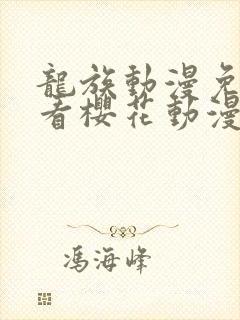 龍族動漫免
看櫻花動漫
馮海峰